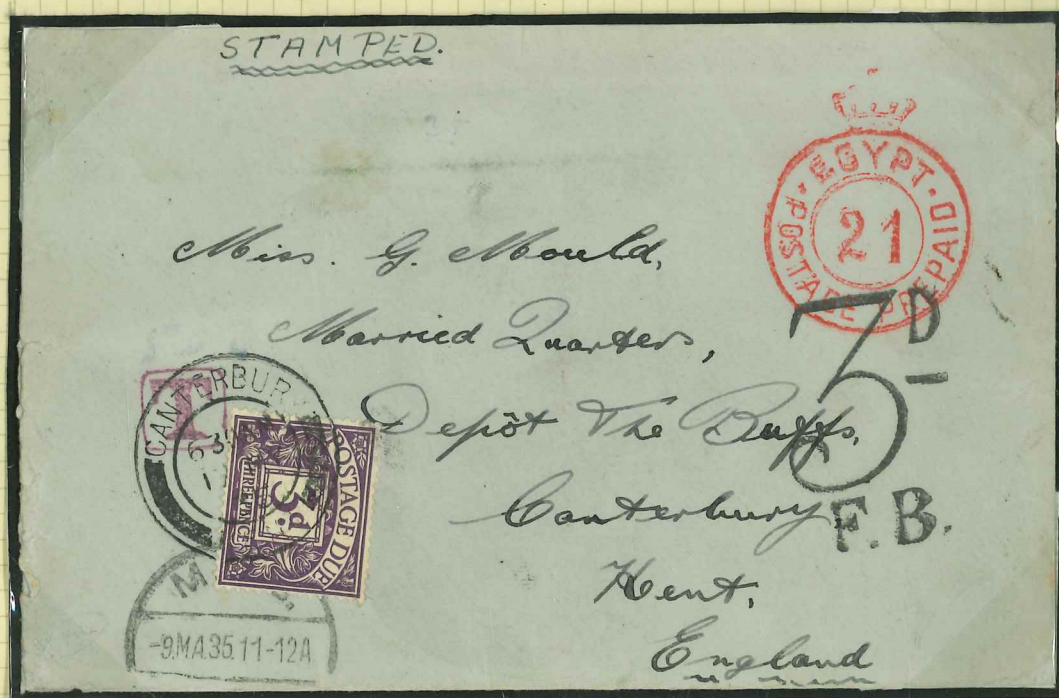 STAMPED.
· EGYPT ·
POSTAGE PREPAID
21
Miss. G. Mould,
Married Quarters,
Depôt The Buffs,
Canterbury
Kent,
England
3D
F.B.
T
CANTERBURY
6 30
POSTAGE DUE
3d
THREE PENCE
-9.MA.35.11-12A